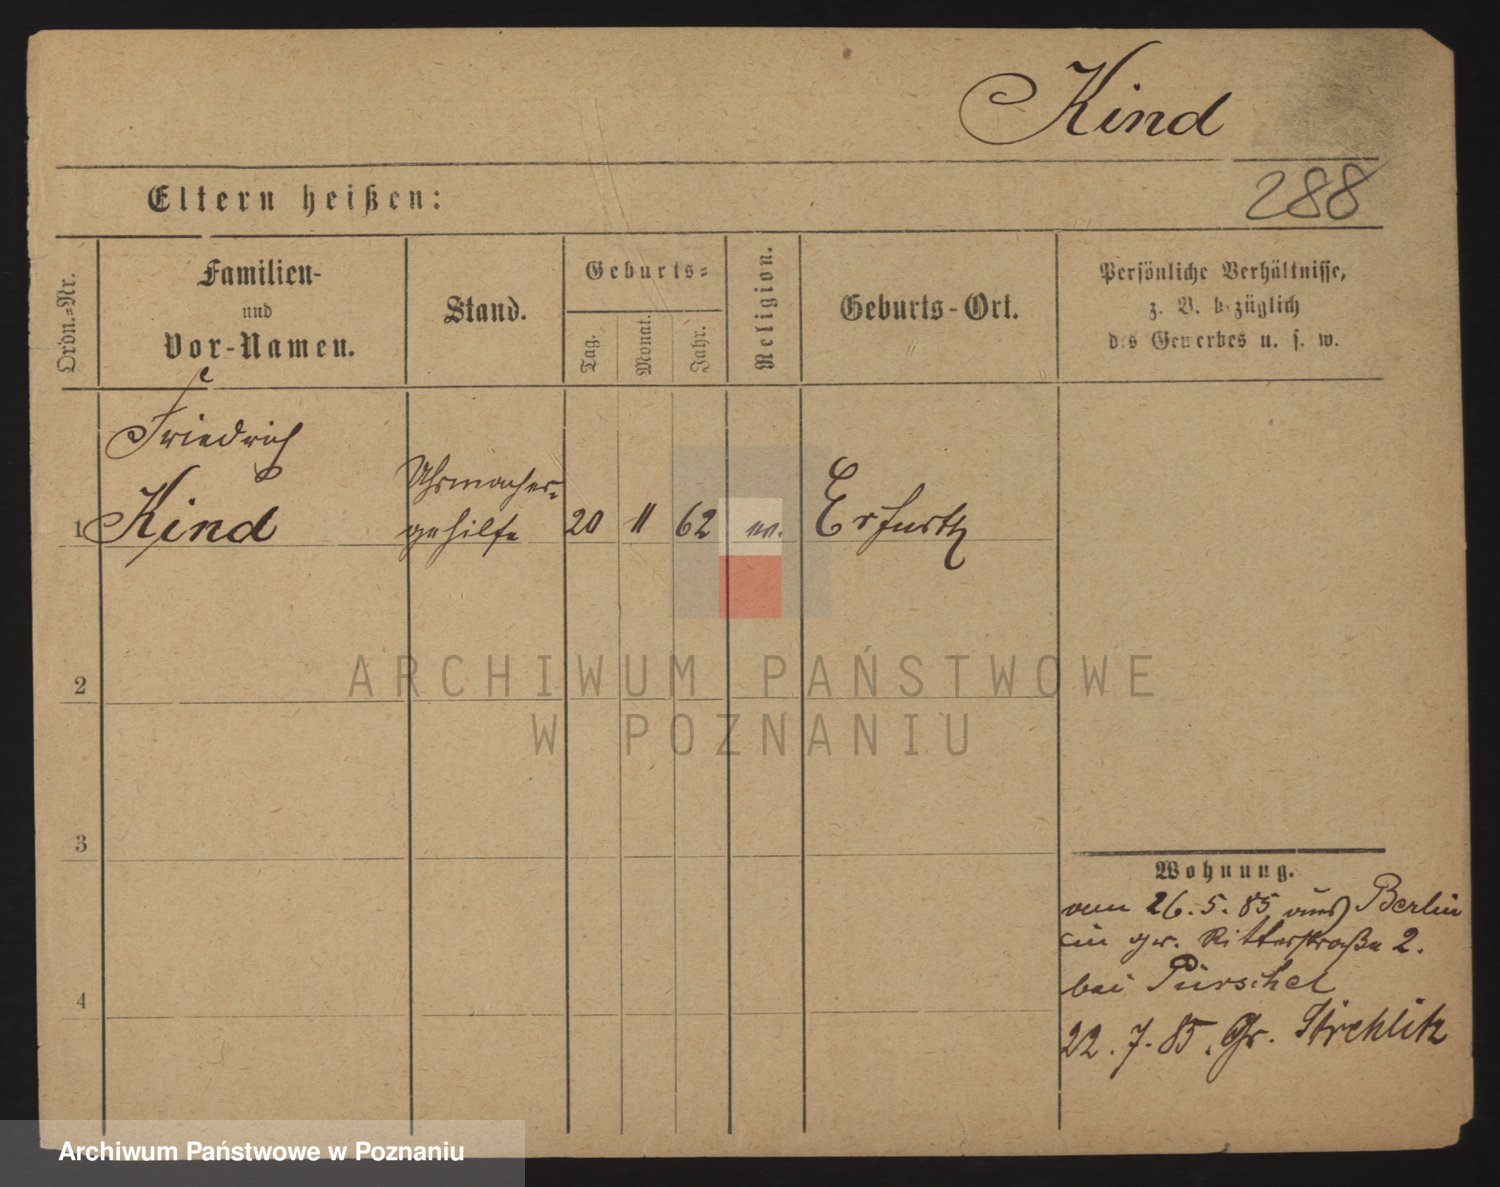 Kind
288
Eltern heißen:
Ordn.-Nr.
Familien-
und
Vor-Namen.
Stand.
Geburts-
Tag.
Monat.
Jahr.
Religion.
Geburts-Ort.
Persönliche Verhältnisse,
z. B. bezüglich
des Gewerbes u. s. w.
Friedrich
Kind
Uhrmacher-
gehilfe
1
20
11
62
ev.
Erfurth
2
3
4
Wohnung.
vom 26.5.85 aus Berlin
in gr. Ritterstraße 2.
bei Pürschel
22.7.85. Gr. Strehlitz
ARCHIWUM PAŃSTWOWE
W POZNANIU
Archiwum Państwowe w Poznaniu